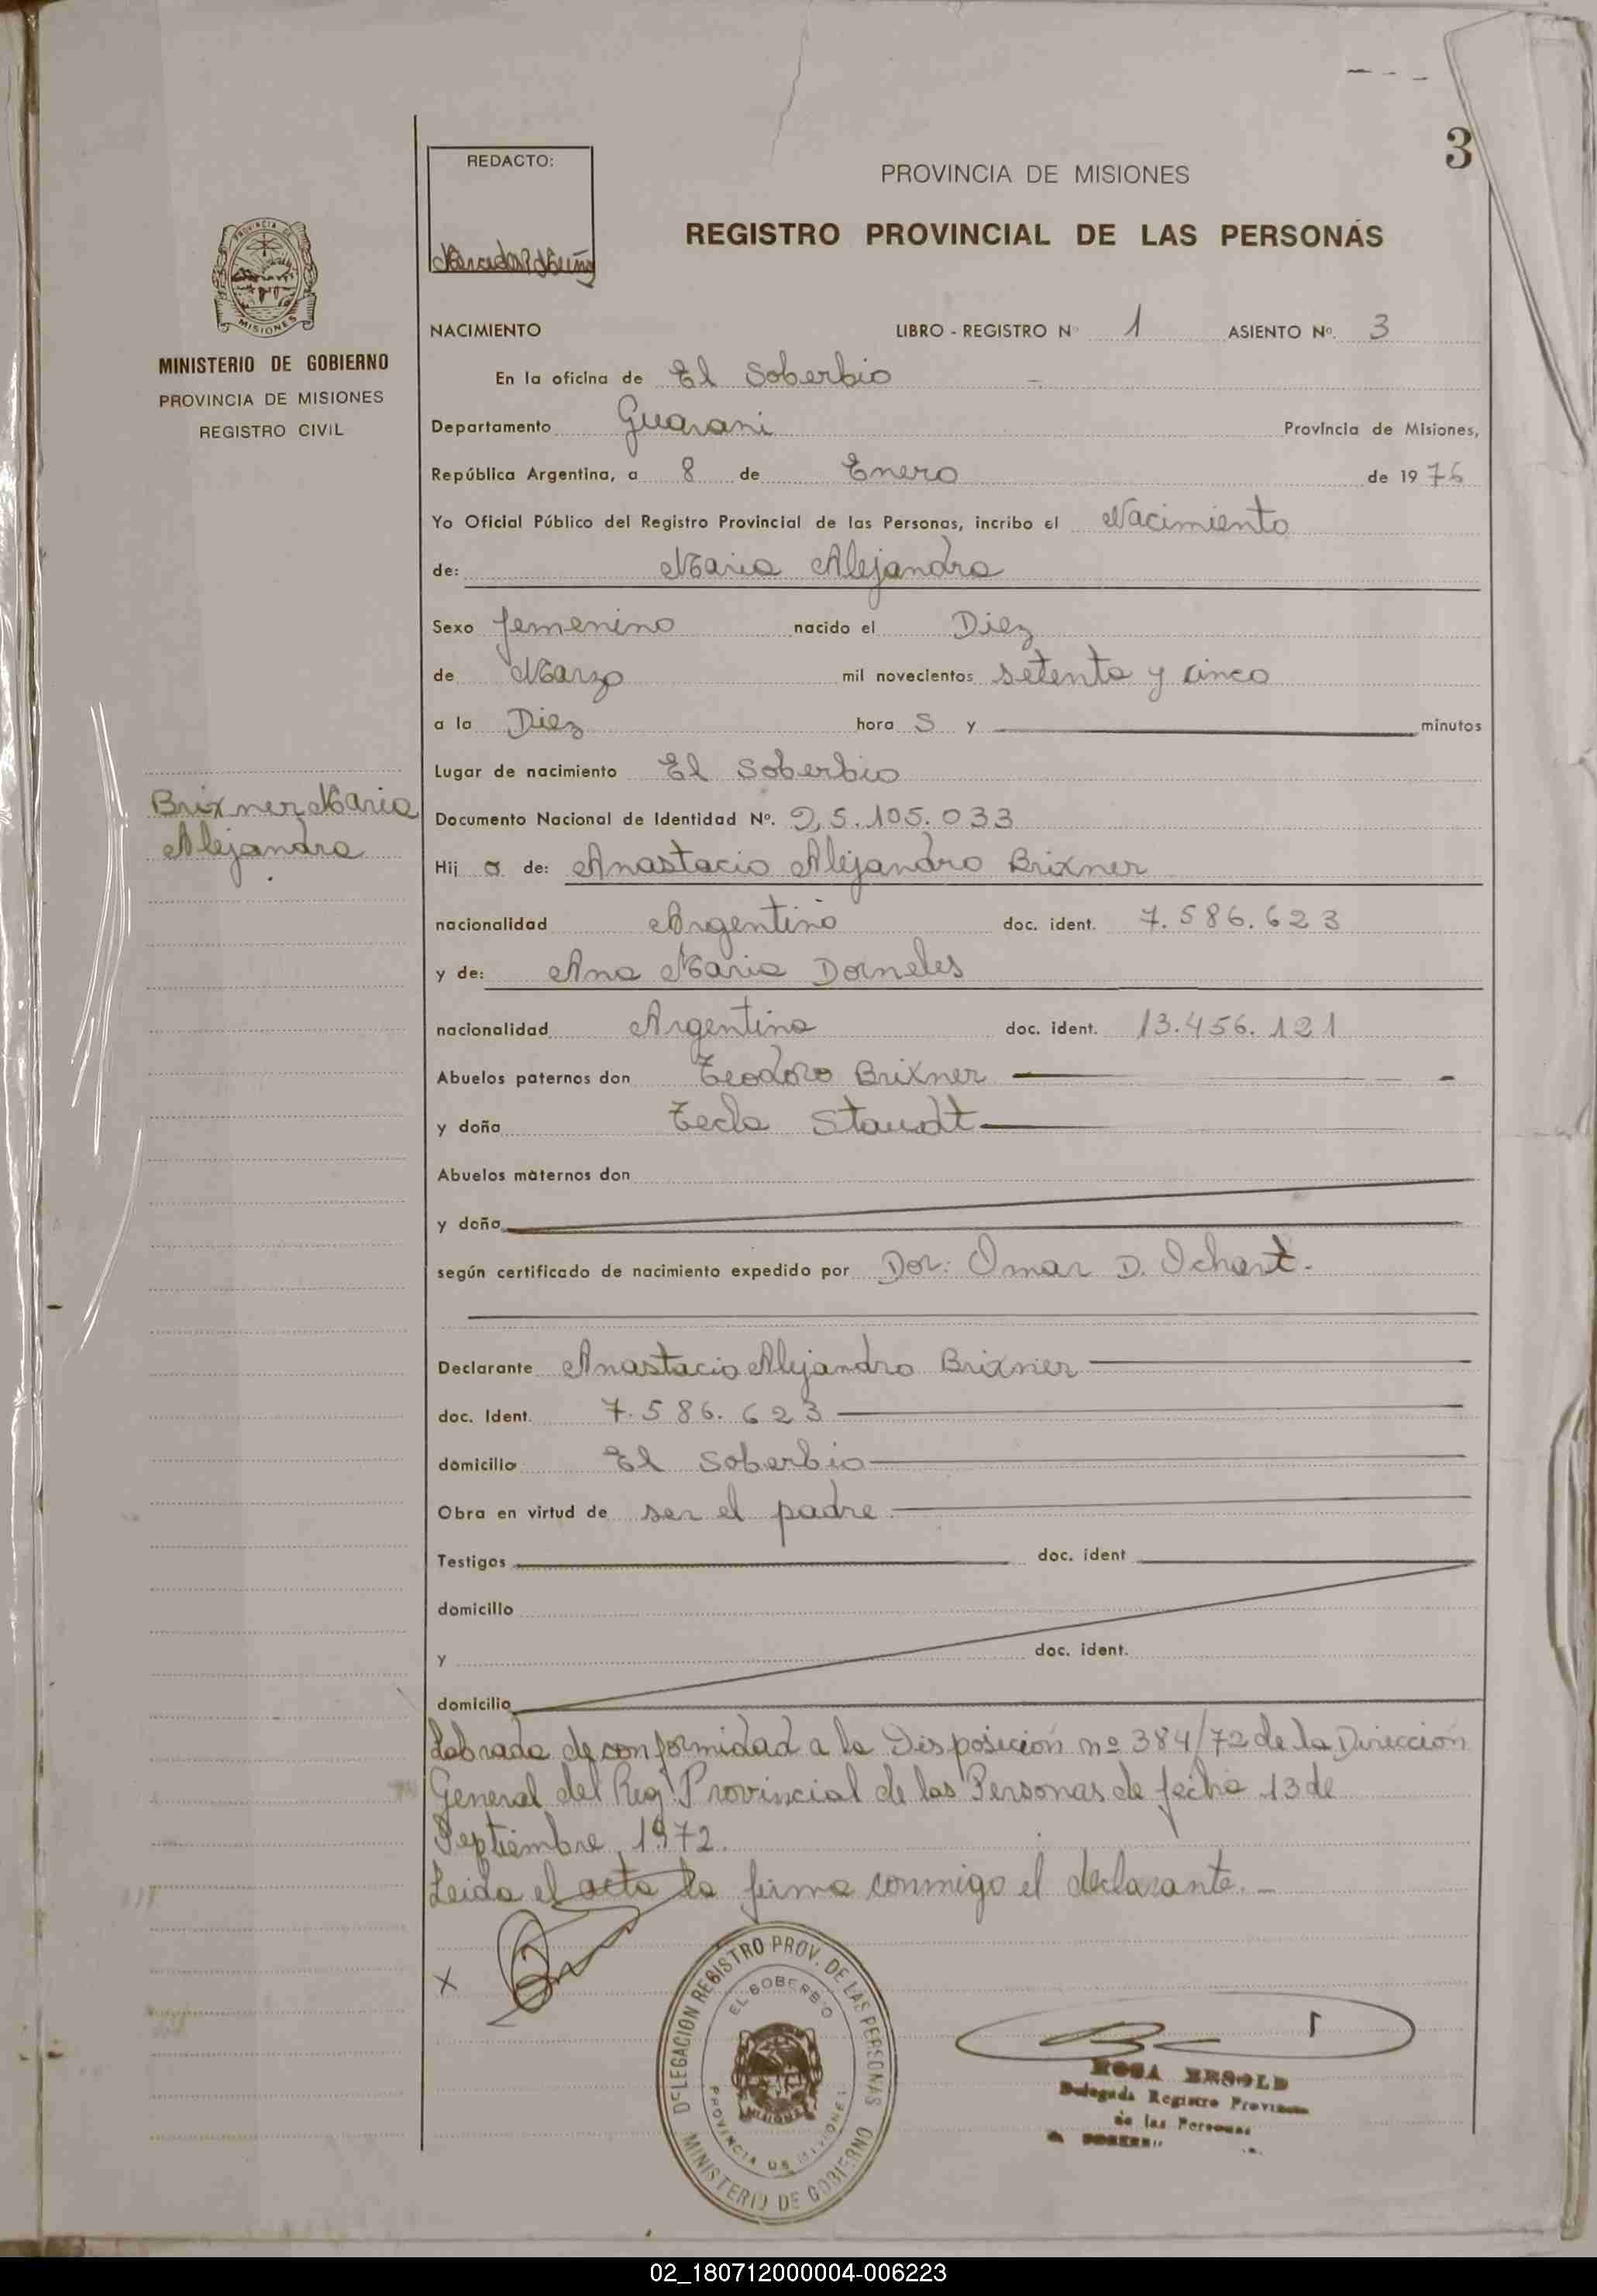 3
REDACTO:
PROVINCIA DE MISIONES
REGISTRO PROVINCIAL DE LAS PERSONAS
MISIONES
MINISTERIO DE GOBIERNO
PROVINCIA DE MISIONES
REGISTRO CIVIL
NACIMIENTO LIBRO - REGISTRO Nº 1 ASIENTO Nº. 3
En la oficina de El Soberbio
Departamento Guarani Provincia de Misiones,
República Argentina, a 8 de Enero de 1976
Yo Oficial Público del Registro Provincial de las Personas, incribo el Nacimiento
de: Maria Alejandra
Sexo femenino nacido el Diez
de Marzo mil novecientos setenta y cinco
a la Diez hora S y minutos
Lugar de nacimiento El Soberbio
Brixner Maria
Alejandra
Documento Nacional de Identidad Nº. 25.105.033
Hij a de: Anastacio Alejandro Brixner
nacionalidad Argentino doc. ident. 7.586.623
y de: Ana Maria Dorneles
nacionalidad Argentina doc. ident. 13.456.121
Abuelos paternos don Teodoro Brixner
y doña Tecla Staudt
Abuelos maternos don
y doña
según certificado de nacimiento expedido por Dor: Omar D. Ichart.
Declarante Anastacio Alejandro Brixner
doc. Ident. 7.586.623
domicilio El Soberbio
Obra en virtud de ser el padre
Testigos doc. ident
domicilio
y doc. ident.
domicilio
Labrada de conformidad a la Disposición nº 384/72 de la Dirección
General del Reg. Provincial de las Personas de fecha 13 de
Septiembre 1972.
Leida el acta la firma conmigo el declarante.-
X
DELEGACION REGISTRO PROV. DE LAS PERSONAS
EL SOBERBIO
PROVINCIA DE MISIONES
MINISTERIO DE GOBIERNO
ROSA
Delegada Registro Provincial
de las Personas
02_180712000004-006223